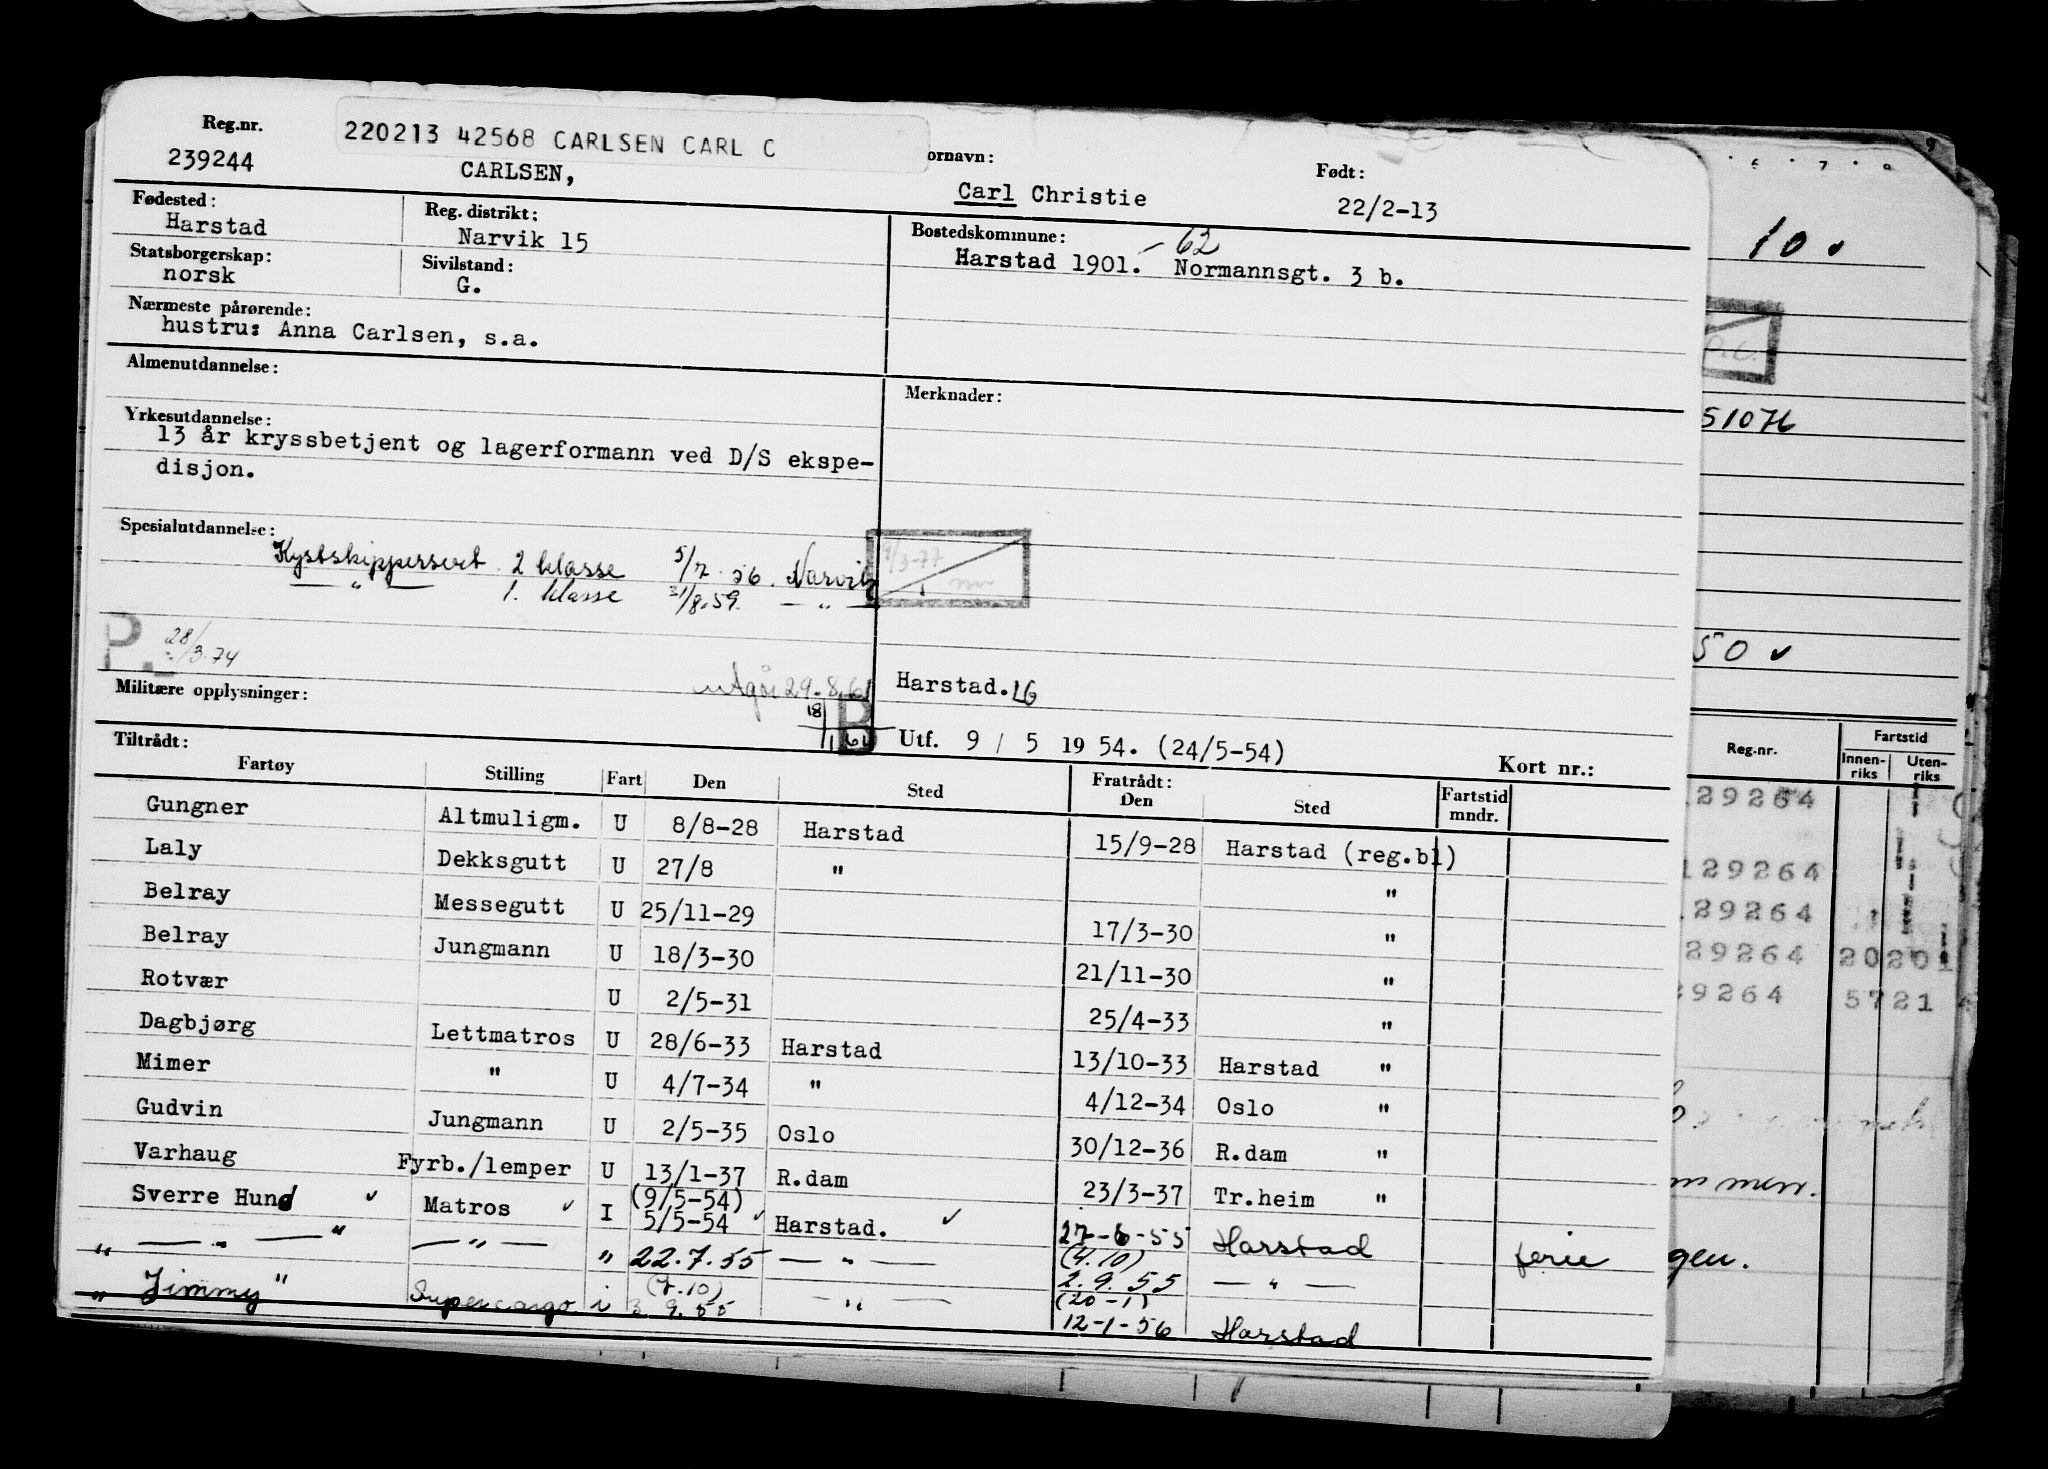 Reg.nr.
239244
220213 42568 CARLSEN CARL C
CARLSEN,
ornavn:
Carl Christie
Født:
22/2-13
Fødested:
Harstad
Reg. distrikt:
Narvik 15
Bostedskommune:
Harstad 1901. - 62 Normannsgt. 3 b.
Statsborgerskap:
norsk
Sivilstand:
G.
Nærmeste pårørende:
hustru: Anna Carlsen, s.a.
Almenutdannelse:
Merknader:
Yrkesutdannelse:
13 år kryssbetjent og lagerformann ved D/S ekspe-
disjon.
Spesialutdannelse:
Kystskippersert. 2 klasse 5/7.56. Narvik
— " — 1. klasse 31/8.59. — " —
9/3-77
P. 28/3.74
utgår 29.8.61
Militære opplysninger:
Harstad. LG
18/1 61
B
Utf. 9 / 5 19 54. (24/5-54)
Kort nr.:
Tiltrådt:
Fratrådt:
Fartøy Stilling Fart Den Sted Den Sted Fartstid mndr.
Gungner Altmuligm. U 8/8-28 Harstad 15/9-28 Harstad (reg.bl)
Laly Dekksgutt U 27/8 " "
Belray Messegutt U 25/11-29 17/3-30 "
Belray Jungmann U 18/3-30 21/11-30 "
Rotvær U 2/5-31 25/4-33 "
Dagbjørg Lettmatros U 28/6-33 Harstad 13/10-33 Harstad "
Mimer " U 4/7-34 " 4/12-34 Oslo "
Gudvin Jungmann U 2/5-35 Oslo 30/12-36 R.dam "
Varhaug Fyrb./lemper U 13/1-37 R.dam 23/3-37 Tr.heim "
(9/5-54)
Sverre Hund ✓ Matros ✓ I 5/5-54 ✓ Harstad. ✓ 27-6-55 Harstad ferie
(4.10)
" — " — " — " — " 22.7.55 — " — 2.9.55 — " —
(7.10) (20-1)
" Jimmy " Supercargo i 3.9.55 — " — 12-1-56 Harstad
10 ✓
51076
50 ✓
Reg.nr.
Fartstid
Innen-
riks
Uten-
riks
129264
129264
29264
29264 2020
9264 5721
mmen.
gen.